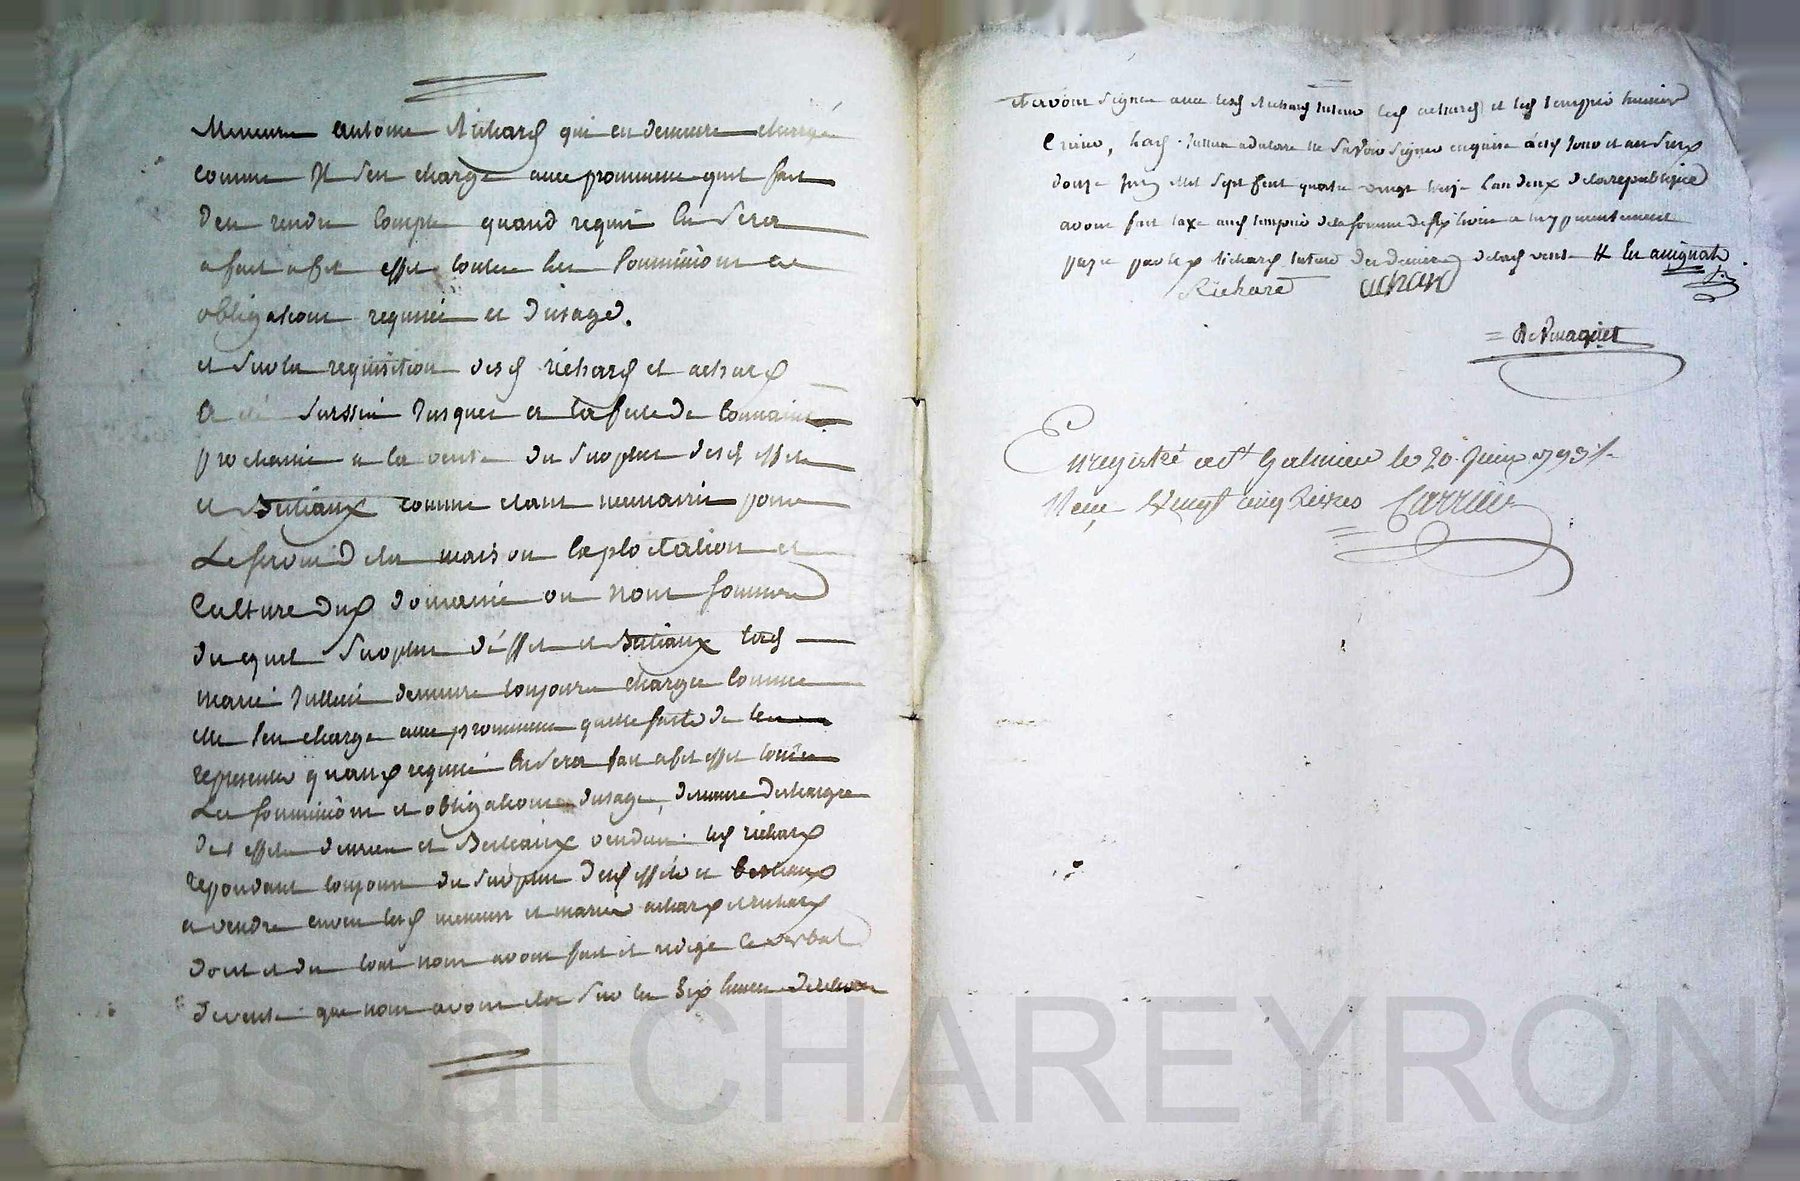 demeure antoine Richard qui en demeure chargé
comme Il s'en charge avec promesse quil fait
d'en rendre compte quand requis En sera
a fait a cet effet toutes les soumissions et
obligations requises et d'usage.
et sur la requisition desd richard et achard
a été surssis jusques a la fete de toussaint
prochaine a la vente du surplus desd effets
et Bestiaux comme etant necessaires pour
Le service de la maison Exploitation et
Culture dud domaine ou nous sommes
duquel surplus d'effets et Bestiaux lad
marie Jullien demeure toujours chargée comme
elle s'en charge avec promesse quelle fait de les
représenter quand requise En sera fait a cet effet toutes
Les soumissions et obligations d'usage, demeure deschargée
des effets denrées et Bestiaux vendus. led richard
repondant toujours du surplus desd effets et bestiaux
a vendre envers lesd mineurs et mariés achard et richard
dont et du tout nous avons fait et redigé ce verbal
de vente que nous avons clos sur les six heures
et avons signé avec lesd Richard tuteur led achard et led
lad. Jullien a declaré ne savoir signer enquise
douze juin mil sept cent quatre vingt treize L'an deux de la republique
avons fait taxe aud de la somme de six livres
payé par led richard tuteur des deniers de lad vente # En assignats
Richard achard
= DeVinaquet
Enregistré a St Galmier le 20. Juin 1793 /.
Reçu Vingt cinq Livres Carrier
Pascal CHAREYRON